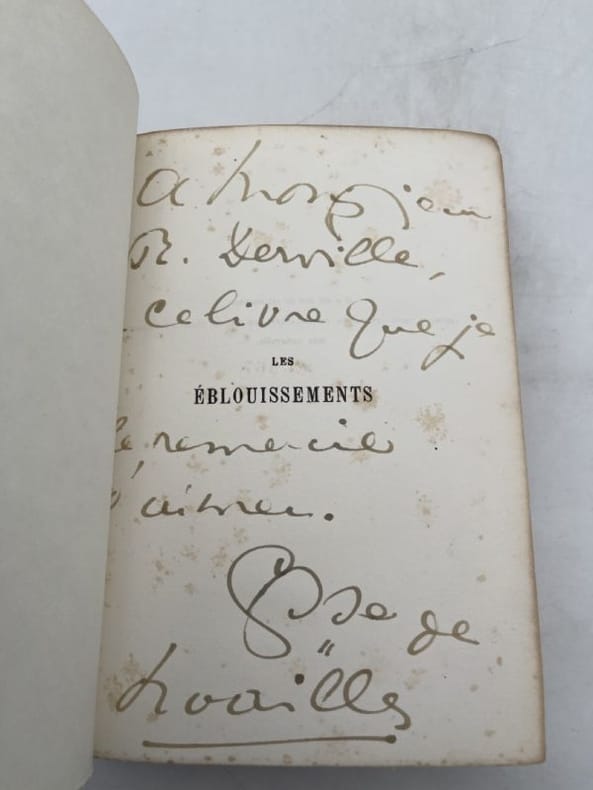 A Mons jean
R. Derville,
ce livre que je
LES
ÉBLOUISSEMENTS
le remercie
d'aimer.
Csse de
Noailles